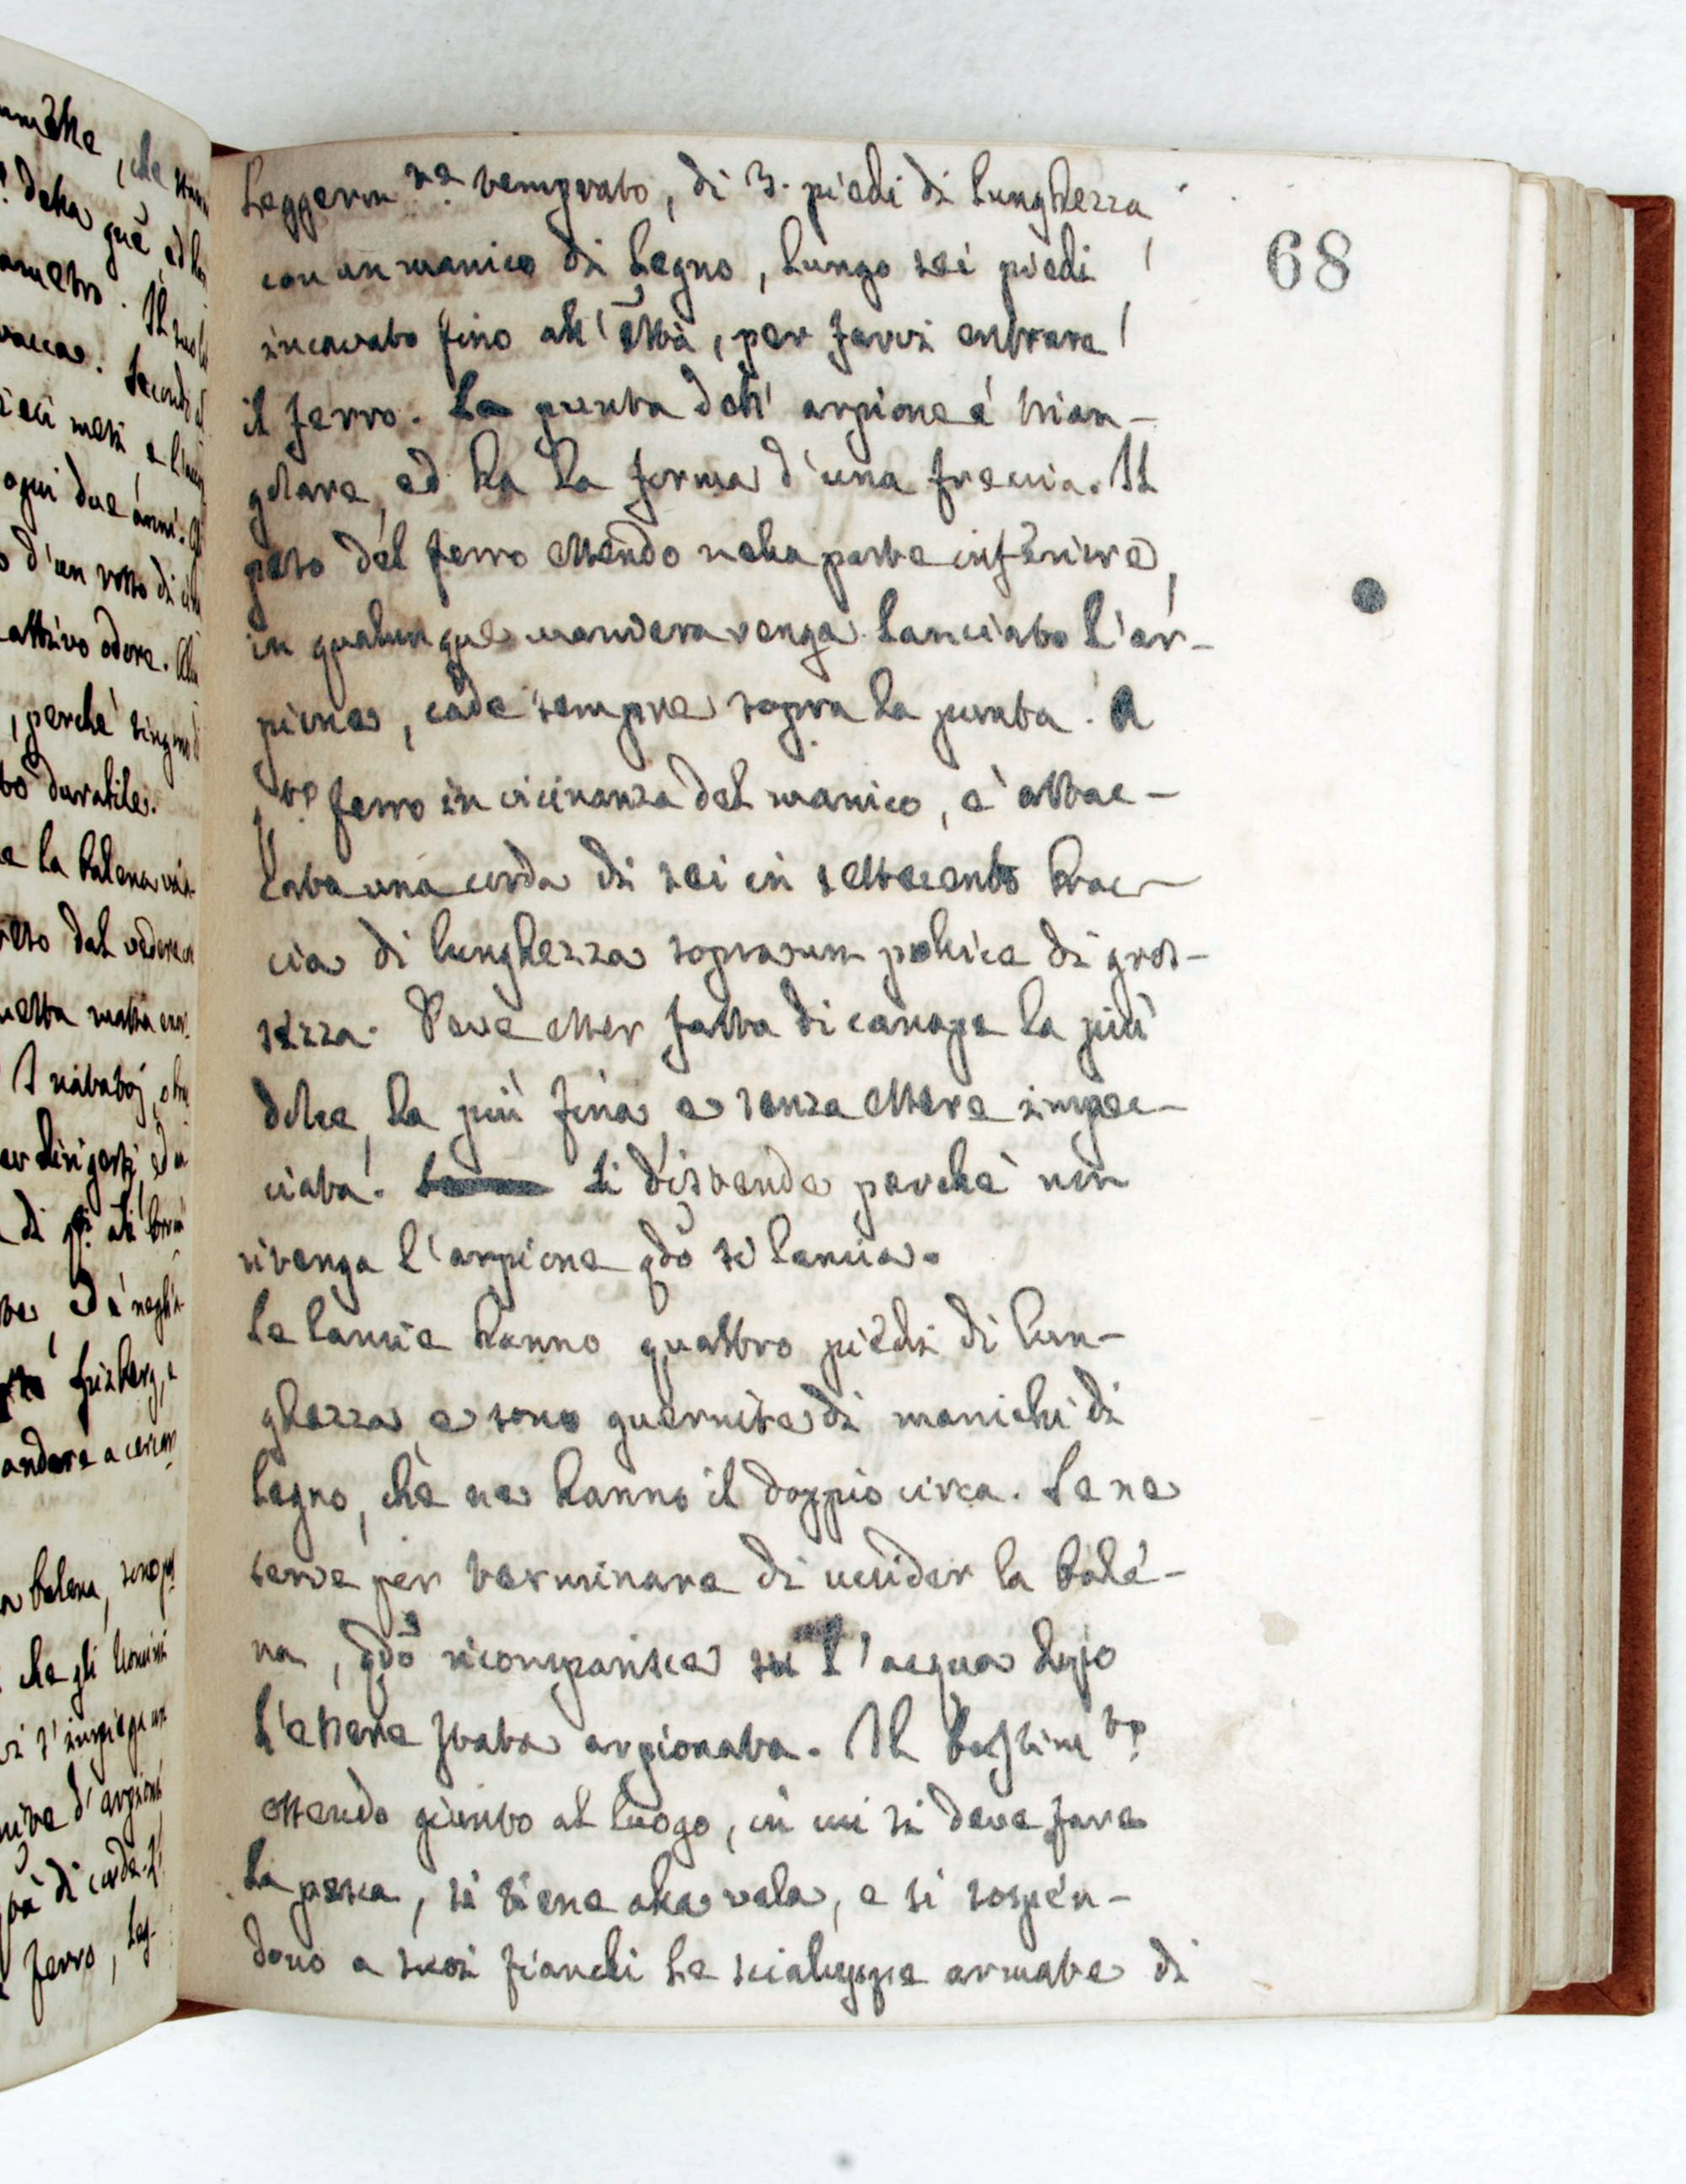 Leggerm.te temprato, di 3. piedi di lunghezza
68
con un manico di legno, lungo sei piedi
incavato fino all' , per farvi entrare
il ferro. La punta dell' arpione é trian-
golare, ed ha la forma d'una freccia. Il
peso del ferro essendo nella parte inferiore,
in qualunque maniera venga lanciato l'ar-
pione, cade sempre sopra la punta. A
ferro in vicinanza del manico, è attac-
cata una corda di sei in settecento brac-
cia di lunghezza sopra un pollice di gros-
sezza. Deve esser fatta di canape la più
dolce, la più fina, e senza essere impec-
ciata. Si distende perchè non
ritenga l'arpione qdo si lancia.
Le lancie hanno quattro piedi di lun-
ghezza, e sono guernite di manichi di
legno, che ne hanno il doppio circa. Se ne
serve per terminare di uccider la bale-
na, qdo ricomparisce su l'acqua dopo
l'essere stata arpionata. Il bastim.to
essendo giunto al luogo, in cui si deve fare
la pesca, si tiene alla vela, e si sospen-
dono a suoi fianchi le scialuppe armate di